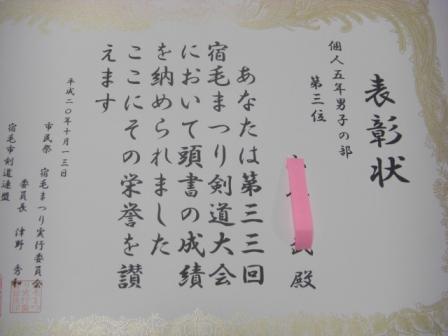 表彰状
個人五年男子の部
第三位
殿
あなたは第三三回
宿毛まつり剣道大会
において頭書の成績
を納められました
ここにその栄誉を讃
えます
平成二〇年十月一三日
市民祭 宿毛まつり実行委員会
委員長 津野 秀和
宿毛市剣道連盟